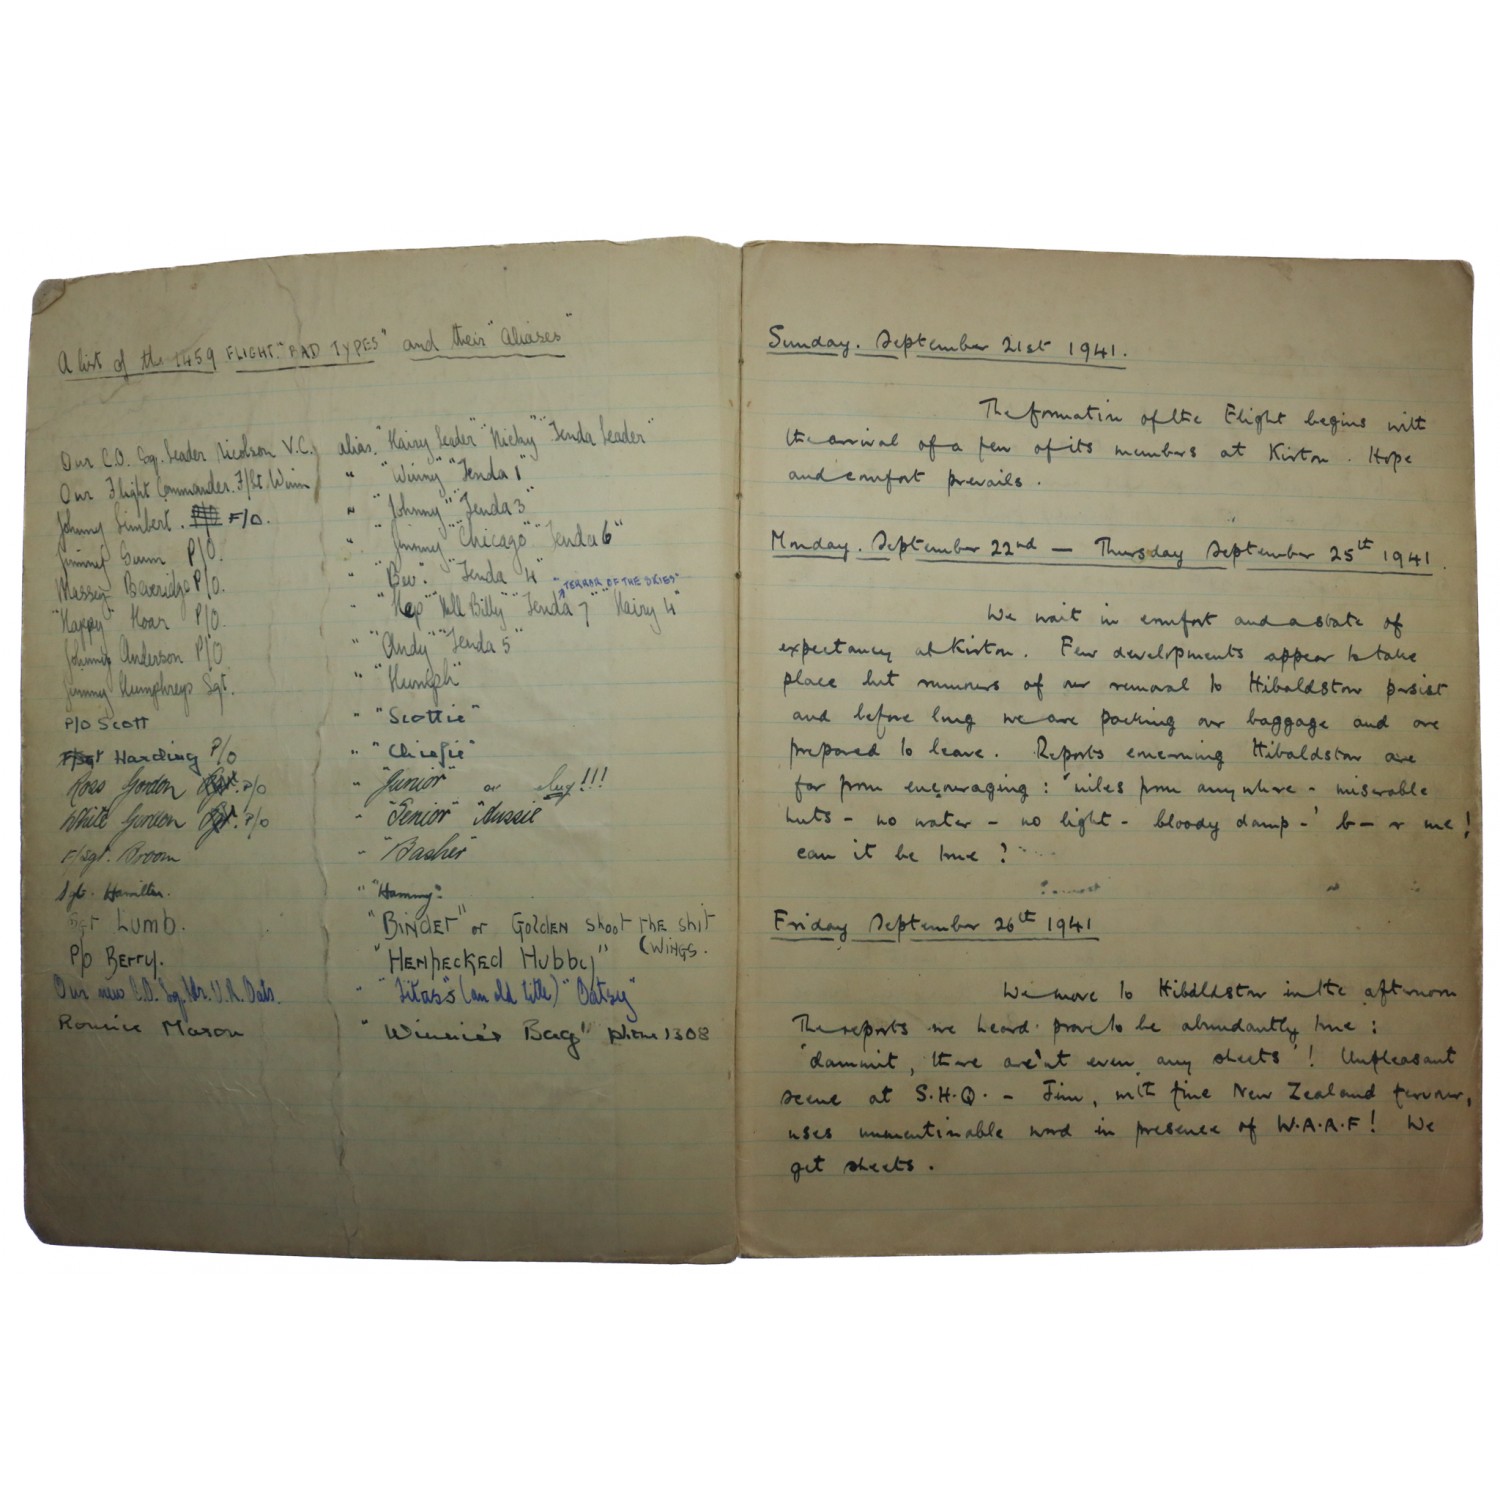 A list of the 1459 FLIGHT "BAD TYPES" and their "Aliases"
Our C.O. Sq. Leader Nicolson V.C. alias. "Hairy Leader" "Nicky" "Tenda Leader"
Our Flight Commander. F/Lt. Winn " "Winny" "Tenda 1"
Johnny Limbert. F/O. " "Johnny" "Tenda 3"
Jimmy Gunn P/O. " "Jimmy" "Chicago" "Tenda 6"
Massey Beveridge P/O. " "Bev". "Tenda 4"
"TERROR OF THE SKIES"
"Happy" Hoar P/O. " "Hap" "Hill Billy" "Tenda 7" "Hairy 4"
Johnny Anderson P/O " "Andy" "Tenda 5"
Jimmy Humphreys Sgt. " "Humph"
P/O Scott " "Scottie"
Harding P/O " "Chiefie"
Ross Gordon P/O " "Junior" or !!!
White Gordon P/O " "Senior" "Aussie"
F/Sgt. Broom " "Basher"
Sgt. Hamilton. " "Hammy"
Sgt Lumb. "BINDER" or GOLDEN shoot the shit
(WINGS.
P/O Berry. "HENPECKED HUBBY"
Our new C.O. Sq. Ldr. V.R. Oats. " (an old title) "Oatsy"
Ronnie Mason " "Winnie's Bag" phone 1308
Sunday. September 21st 1941.
The formation of the Flight begins with
the arrival of a few of its members at Kirton. Hope
and comfort prevails.
Monday. September 22nd — Thursday September 25th 1941.
We wait in comfort and a state of
expectancy at Kirton. Few developments appear to take
place but rumours of our removal to Hibaldstow persist
and before long we are packing our baggage and are
prepared to leave. Reports concerning Hibaldstow are
far from encouraging: 'miles from anywhere - miserable
huts - no water - no light - bloody damp -' b— r me!
can it be true?
Friday September 26th 1941
We move to Hibaldstow in the afternoon
The reports we heard prove to be abundantly true:
'dammit, there are'nt even any sheets'! Unpleasant
scene at S.H.Q. - Jim, with fine New Zealand fervour,
uses unmentionable word in presence of W.A.A.F! We
get sheets.